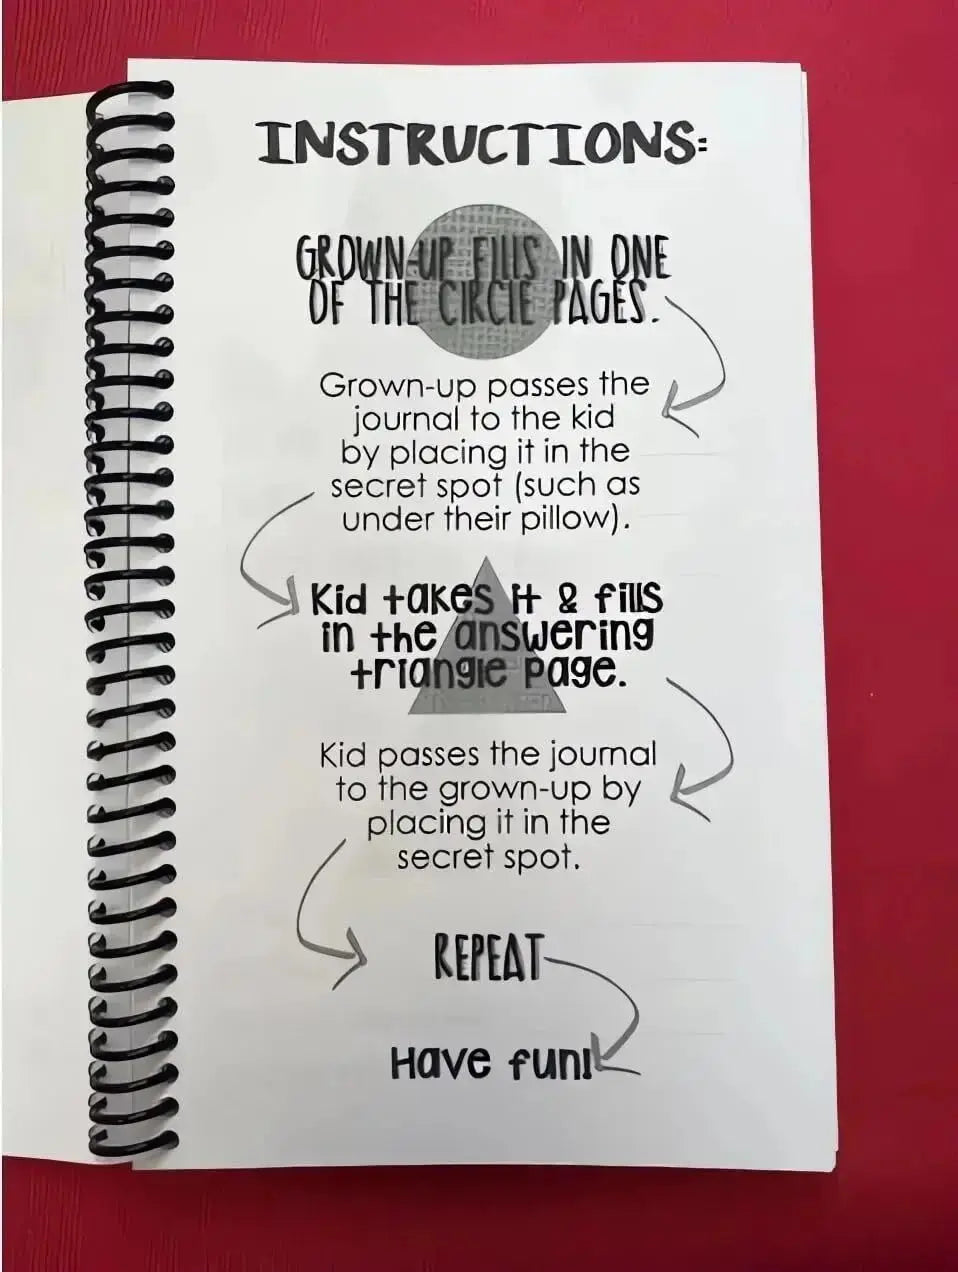 INSTRUCTIONS:
GROWN-UP FILLS IN ONE
OF THE CIRCLE PAGES.
Grown-up passes the
journal to the kid
by placing it in the
secret spot (such as
under their pillow).
Kid takes it & fills
in the answering
triangle page.
Kid passes the journal
to the grown-up by
placing it in the
secret spot.
REPEAT
Have fun!